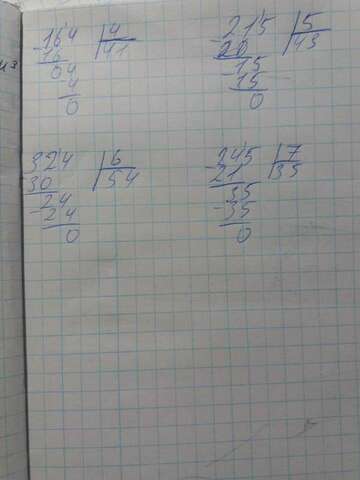 -164 | 4
16 | 41
04
-4
0
-215 | 5
20 | 43
-15
15
0
324 | 6
30 | 54
-24
24
0
-245 | 7
21 | 35
35
-35
0